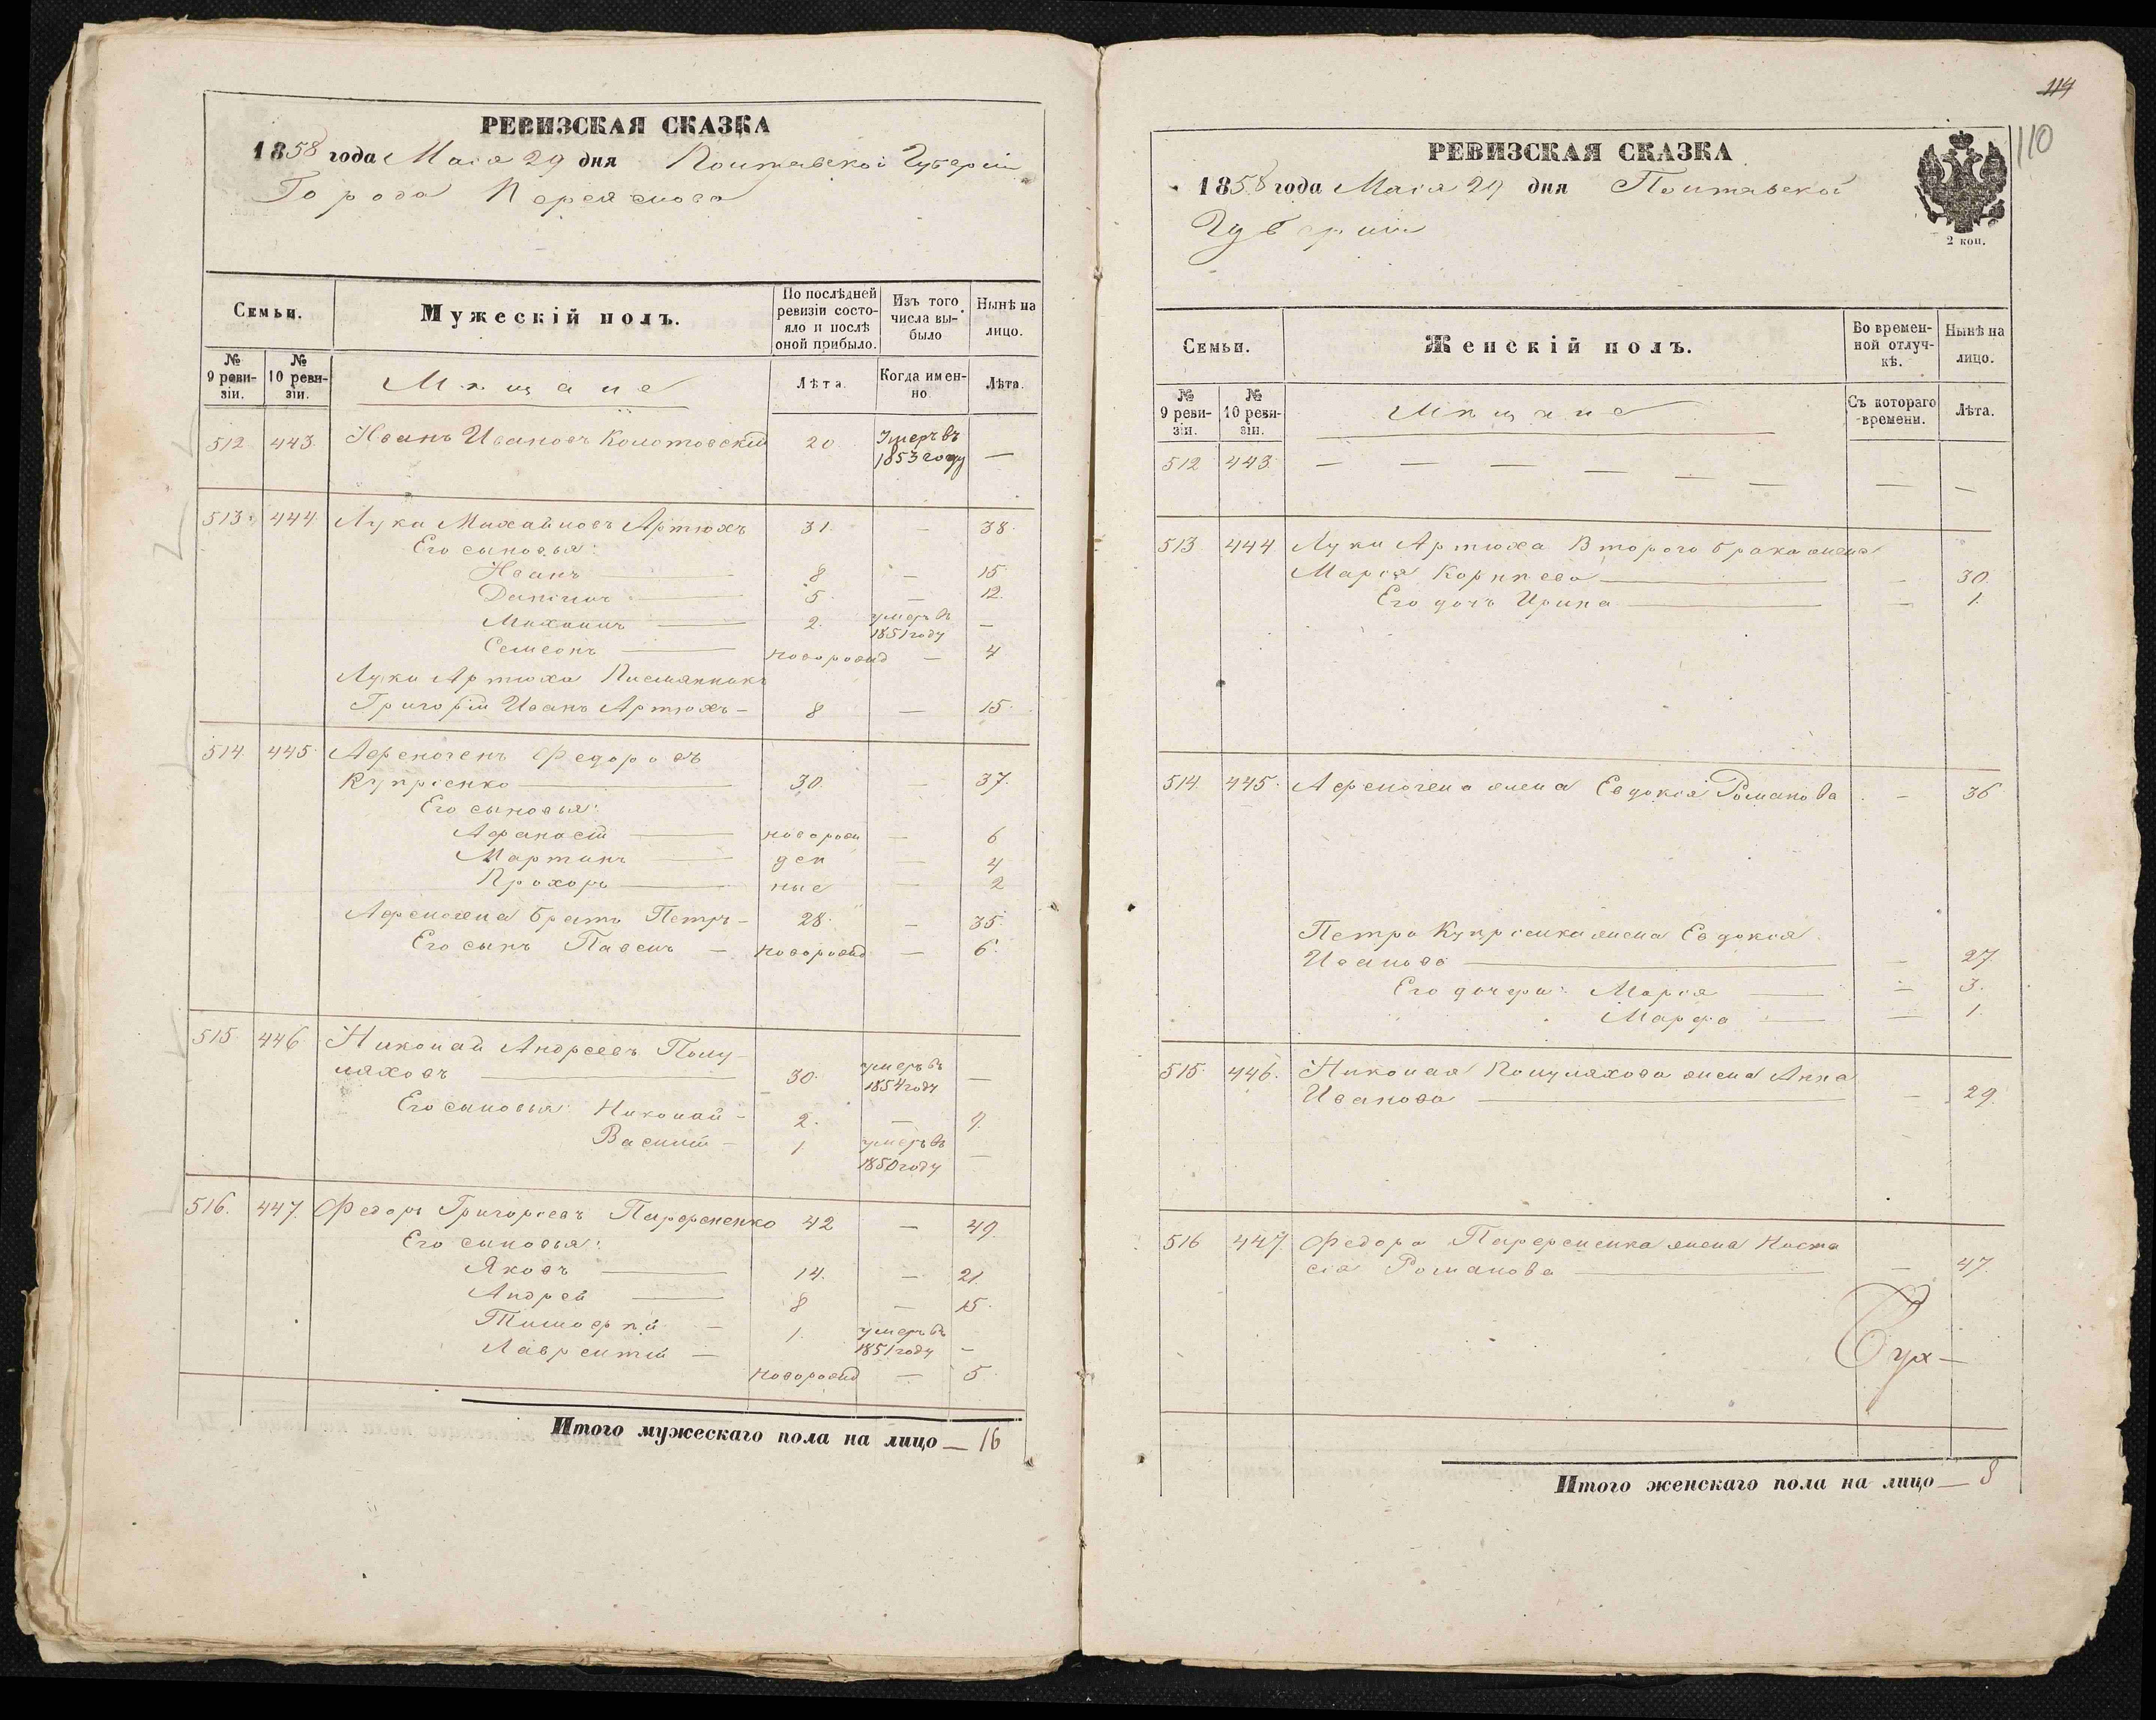 РЕВИЗСКАЯ СКАЗКА
1858 года Мая 29 дня Полтавской Губерніи
Города Переяслова
Семьи.
Мужескій полъ.
По послѣдней ревизіи состояло и послѣ оной прибыло.
Изъ того числа выбыло
Нынѣ на лицо.
№ 9 ревизіи.
№ 10 ревизіи.
Мѣщане
Лѣта.
Когда именно
Лѣта.
512 443. Иванъ Ивановъ Колотовскій 20. Умеръ въ 1853 году —
513. 444 Лука Михайловъ Артюхъ 31. — 38.
Его сыновья:
Иванъ — 8 — 15
Данiилъ — 5 — 12.
Михаилъ — 2. умеръ въ 1851 году —
Семеонъ — новорожд — 4
Луки Артюха Племянникъ
Григорій Иванъ Артюхъ — 8 — 15.
514. 445. Афеногенъ Федоровъ
Купріенко — 30. — 37.
Его сыновья:
Афанасій — новорож — 6
Мартинъ — ден — 4
Прохоръ — ные — 2
Афеногена братъ Петръ — 28. — 35.
Его сынъ Павелъ — новорожд — 6.
515. 446. Николай Андреевъ Полу-
ляховъ — 30. умеръ въ 1854 году —
Его сыновья: Николай — 2. — 9.
Василій — 1 умеръ въ 1850 году —
516. 447. Федоръ Григорьевъ Парфененко 42 — 49.
Его сыновья:
Яковъ — 14. — 21.
Андрей — 8 — 15.
Тимофѣй — 1. умеръ въ 1851 году —
Лаврентій — новорожд — 5.
Итого мужескаго пола на лицо — 16
114
110
РЕВИЗСКАЯ СКАЗКА
1858 года Мая 29 дня Полтавской
Губерніи
2 коп.
Семьи.
Женскій полъ.
Во временной отлучкѣ.
Нынѣ на лицо.
№ 9 ревизіи.
№ 10 ревизіи.
Мѣщане
Съ котораго времени.
Лѣта.
512 443. — — — — — — — —
513 444 Луки Артюха Второго брака жена
Марія Корнѣева — — 30.
Его дочь Ирина — — 1.
514. 445. Афеногена жена Евдокія Романова — 36
Петра Купріенка жена Евдокія
Иванова — — 27.
Его дочери: Марія — — 3.
Марфа — — 1.
515. 446. Николая Полуляхова жена Анна
Иванова — — 29.
516 447. Федора Парфененка жена Наста
сія Романова — — 47.
Итого женскаго пола на лицо — 8